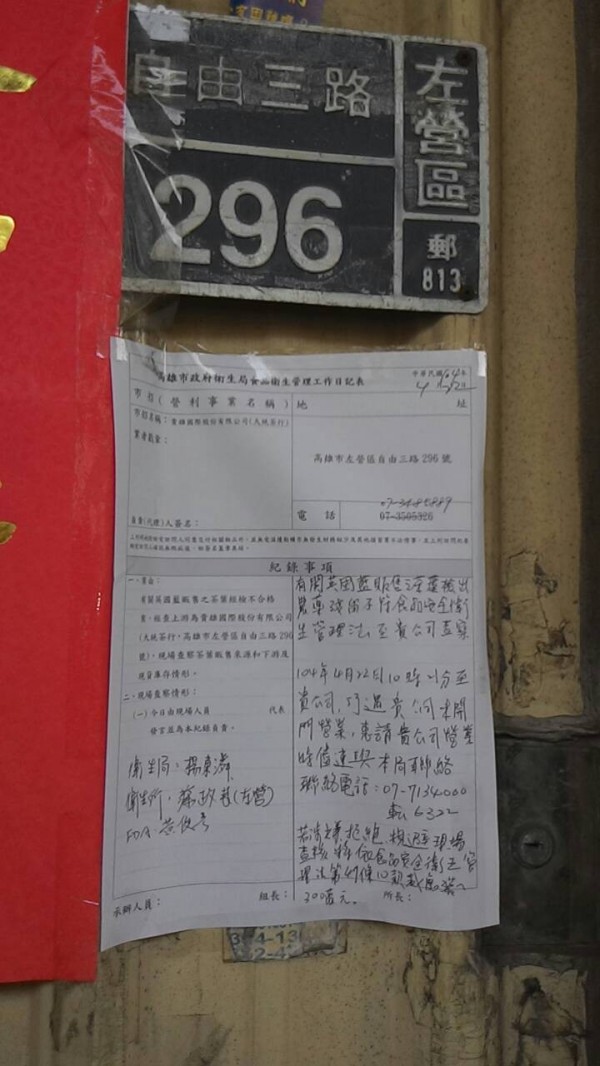 自由三路
296
左營區
郵
813
高雄市政府衛生局食品衛生管理工作日記表
中華民國104年
4
市招(營利事業名稱)地 址
市招名稱:貴雄國際股份有限公司(大統茶行)
高雄市左營區自由三路296號
電 話
07-3505326
負責(代理)人簽名:
紀錄事項
一、案由:
有關英國藍販售之茶葉經檢不合格
案,經查上游為貴雄國際股份有限公司
(大統茶行,高雄市左營區自由三路296
號),現場查察茶葉販售來源和下游及
現貨庫存情形。
二、現場查察情形:
(一)今日由現場人員 代表
發言並為本紀錄負責。
衛生局:楊東
衛生所:(左營)
FDA
有關英國藍販售
食品安全衛
生管理法至貴公司查察
104年4月22日10時 分至
貴公司,巧遇貴公司未開
門營業,惠請貴公司營業
時儘速與本局聯絡
聯絡電話:07-7134000
轉6322
拒絕、規避 現場
查核 將依食品安全衛生管
理法第47條10款裁處
300萬元。
承辦人員: 組長: 所長: